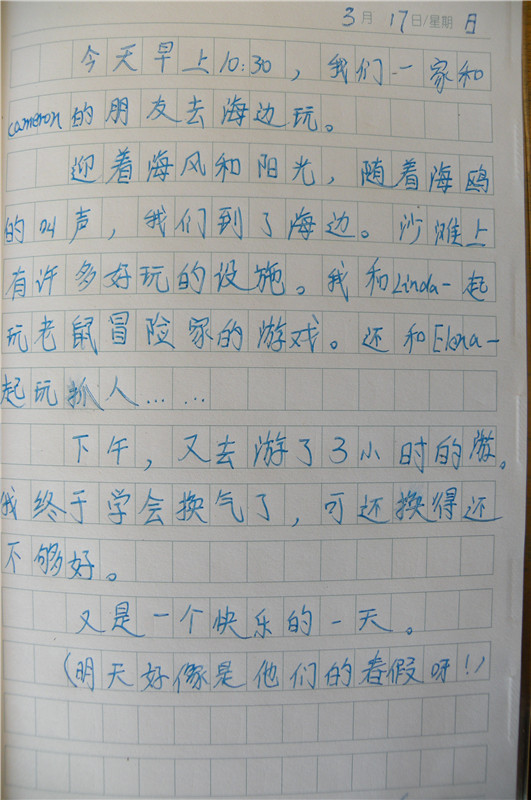 3月17日/星期日
今天早上10:30，我们一家和
cameron的朋友去海边玩。
迎着海风和阳光，随着海鸥
的叫声，我们到了海边。沙滩上
有许多好玩的设施。我和Linda一起
玩老鼠冒险家的游戏。还和Elena一
起玩抓人……
下午，又去游了3小时的游。
我终于学会换气了，可还换得还
不够好。
又是一个快乐的一天。
（明天好像是他们的春假呀！）